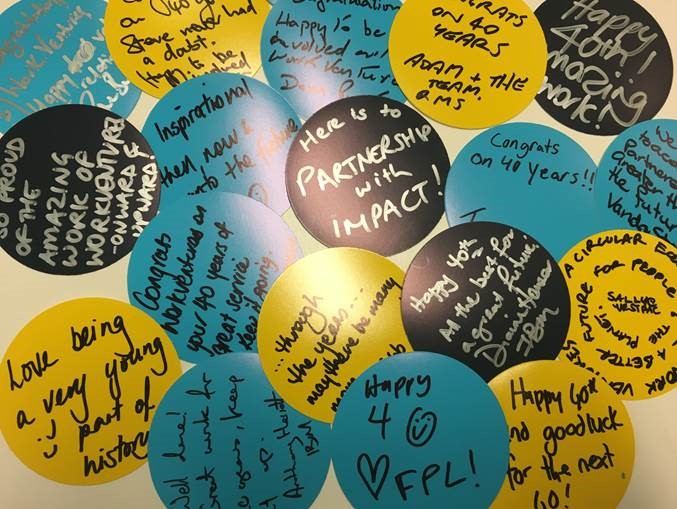 Work Venture
Happy
on
Steve
had
a doubt.
to be
Happy to be
involved
Work Ventur
ON 40
YEARS
ADAM + THE
TEAM.
Happy
40th!
mazing
work!
SO PROUD
OF THE
AMAZING
WORK OF
WORKVENTURES
ONWARD &
UPWARD!
Inspirational
then now &
into the future
Here is to
PARTNERSHIP
with
IMPACT!
Congrats
on 40 years!!
We
Partner
Greater
the Futur
Congrats
WorkVentures on
your 40 years of
great service
keep it going.
...through
the years...
may there be many
Happy 40th
All the best for
a great future.
IBM
A CIRCULAR
FOR PEOPLE & THE PLANET.
A BETTER FUTURE
SALLYO
Love being
a very young
part of
history
Well done!
Great work for
years, keep
it up.
Anthony
IBM
Happy
4 ☺
♡ FPL!
Happy 40th
nd good luck
for the next
40!